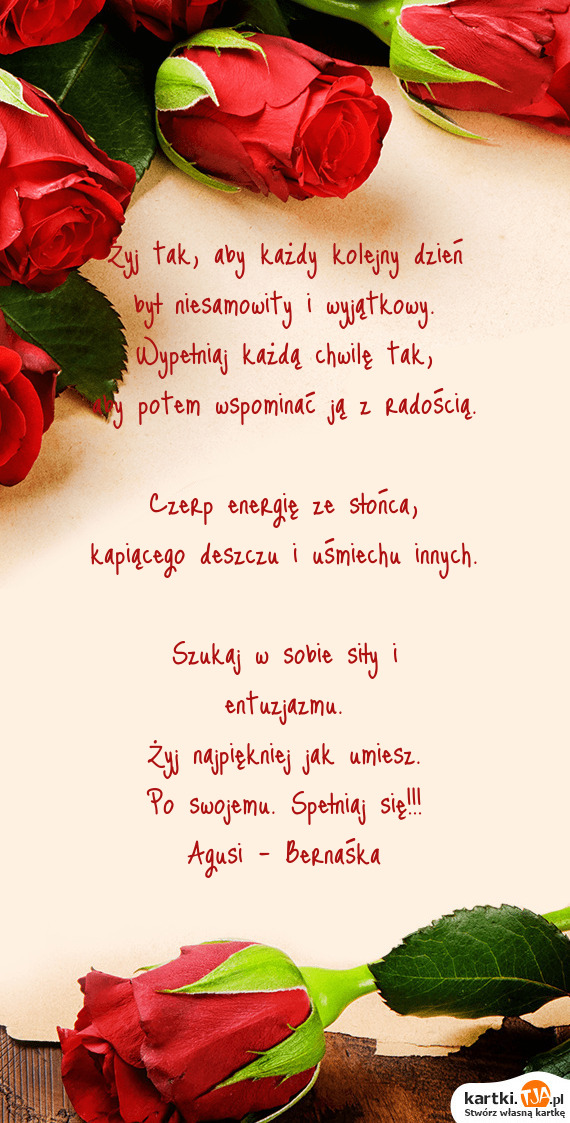 Żyj tak, aby każdy kolejny dzień
był niesamowity i wyjątkowy.
Wypełniaj każdą chwilę tak,
aby potem wspominać ją z radością.
Czerp energię ze słońca,
kapiącego deszczu i uśmiechu innych.
Szukaj w sobie siły i
entuzjazmu.
Żyj najpiękniej jak umiesz.
Po swojemu. Spełniaj się!!!
Agusi - Bernaśka
kartki.TJA.pl
Stwórz własną kartkę